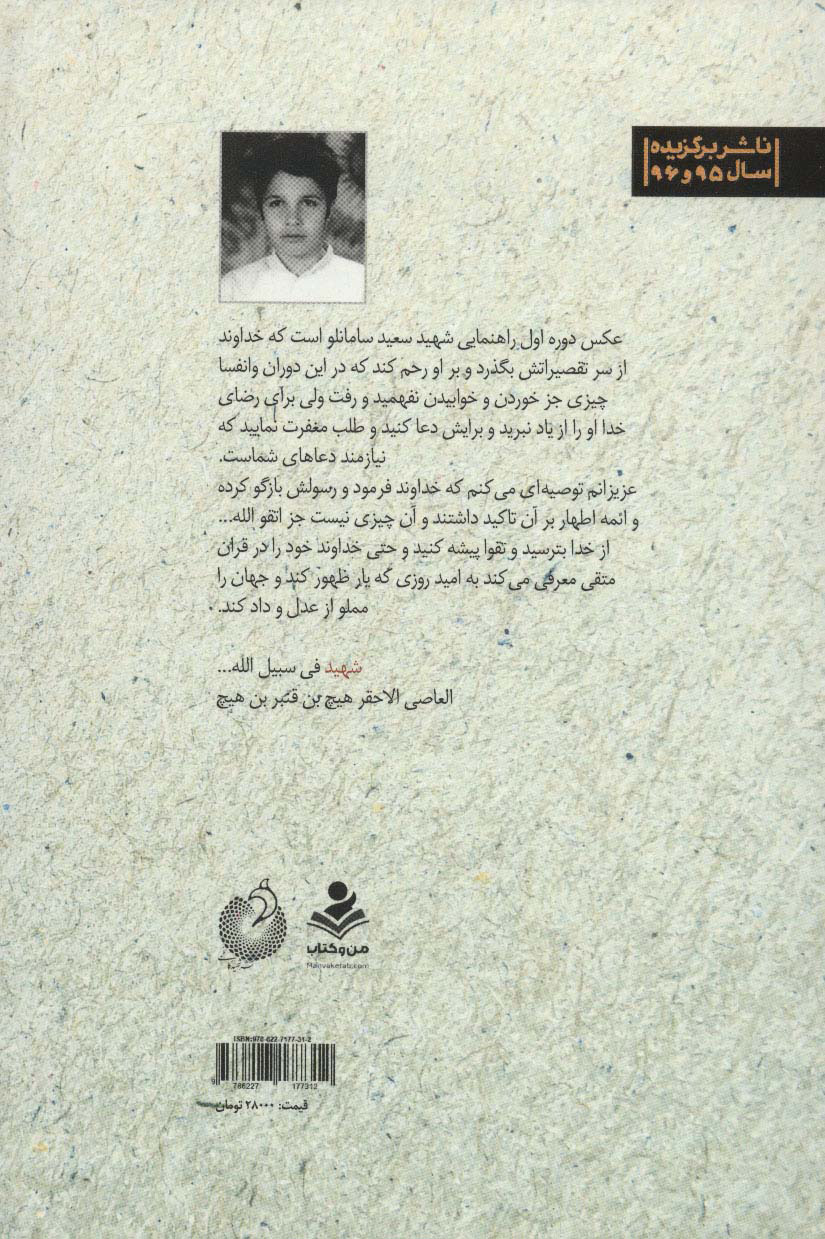 ناشر برگزیده
سال ۹۵ و ۹۶
عکس دوره اول راهنمایی شهید سعید سامانلو است که خداوند
از سر تقصیراتش بگذرد و بر او رحم کند که در این دوران وانفسا
چیزی جز خوردن و خوابیدن نفهمید و رفت ولی برای رضای
خدا او را از یاد نبرید و برایش دعا کنید و طلب مغفرت نمایید که
نیازمند دعاهای شماست.
عزیزانم توصیه‌ای می‌کنم که خداوند فرمود و رسولش بازگو کرده
و ائمه اطهار بر آن تاکید داشتند و آن چیزی نیست جز اتقو الله...
از خدا بترسید و تقوا پیشه کنید و حتی خداوند خود را در قران
متقی معرفی می‌کند به امید روزی که یار ظهور کند و جهان را
مملو از عدل و داد کند.
شهید فی سبیل الله...
العاصی الاحقر هیچ بن قنبر بن هیچ
من و کتاب
Manvaketab.com
ISBN:978-622-7177-31-2
9 786227 177312
قیمت: ۲۸۰۰۰ تومان